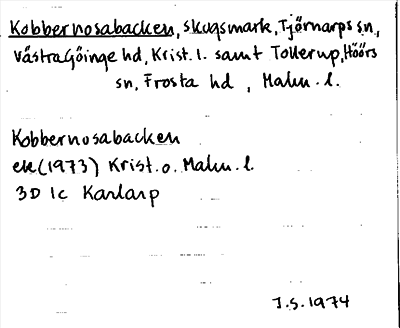 Kobbernosabacken, skogsmark, Tjörnarps sn,
Västra Göinge hd, Krist. l. samt Tollerup, Höörs
sn, Frosta hd, Malm. l.
Kobbernosabacken
ek (1973) Krist. o. Malm. l.
3D 1c Karlarp
J.S. 1974